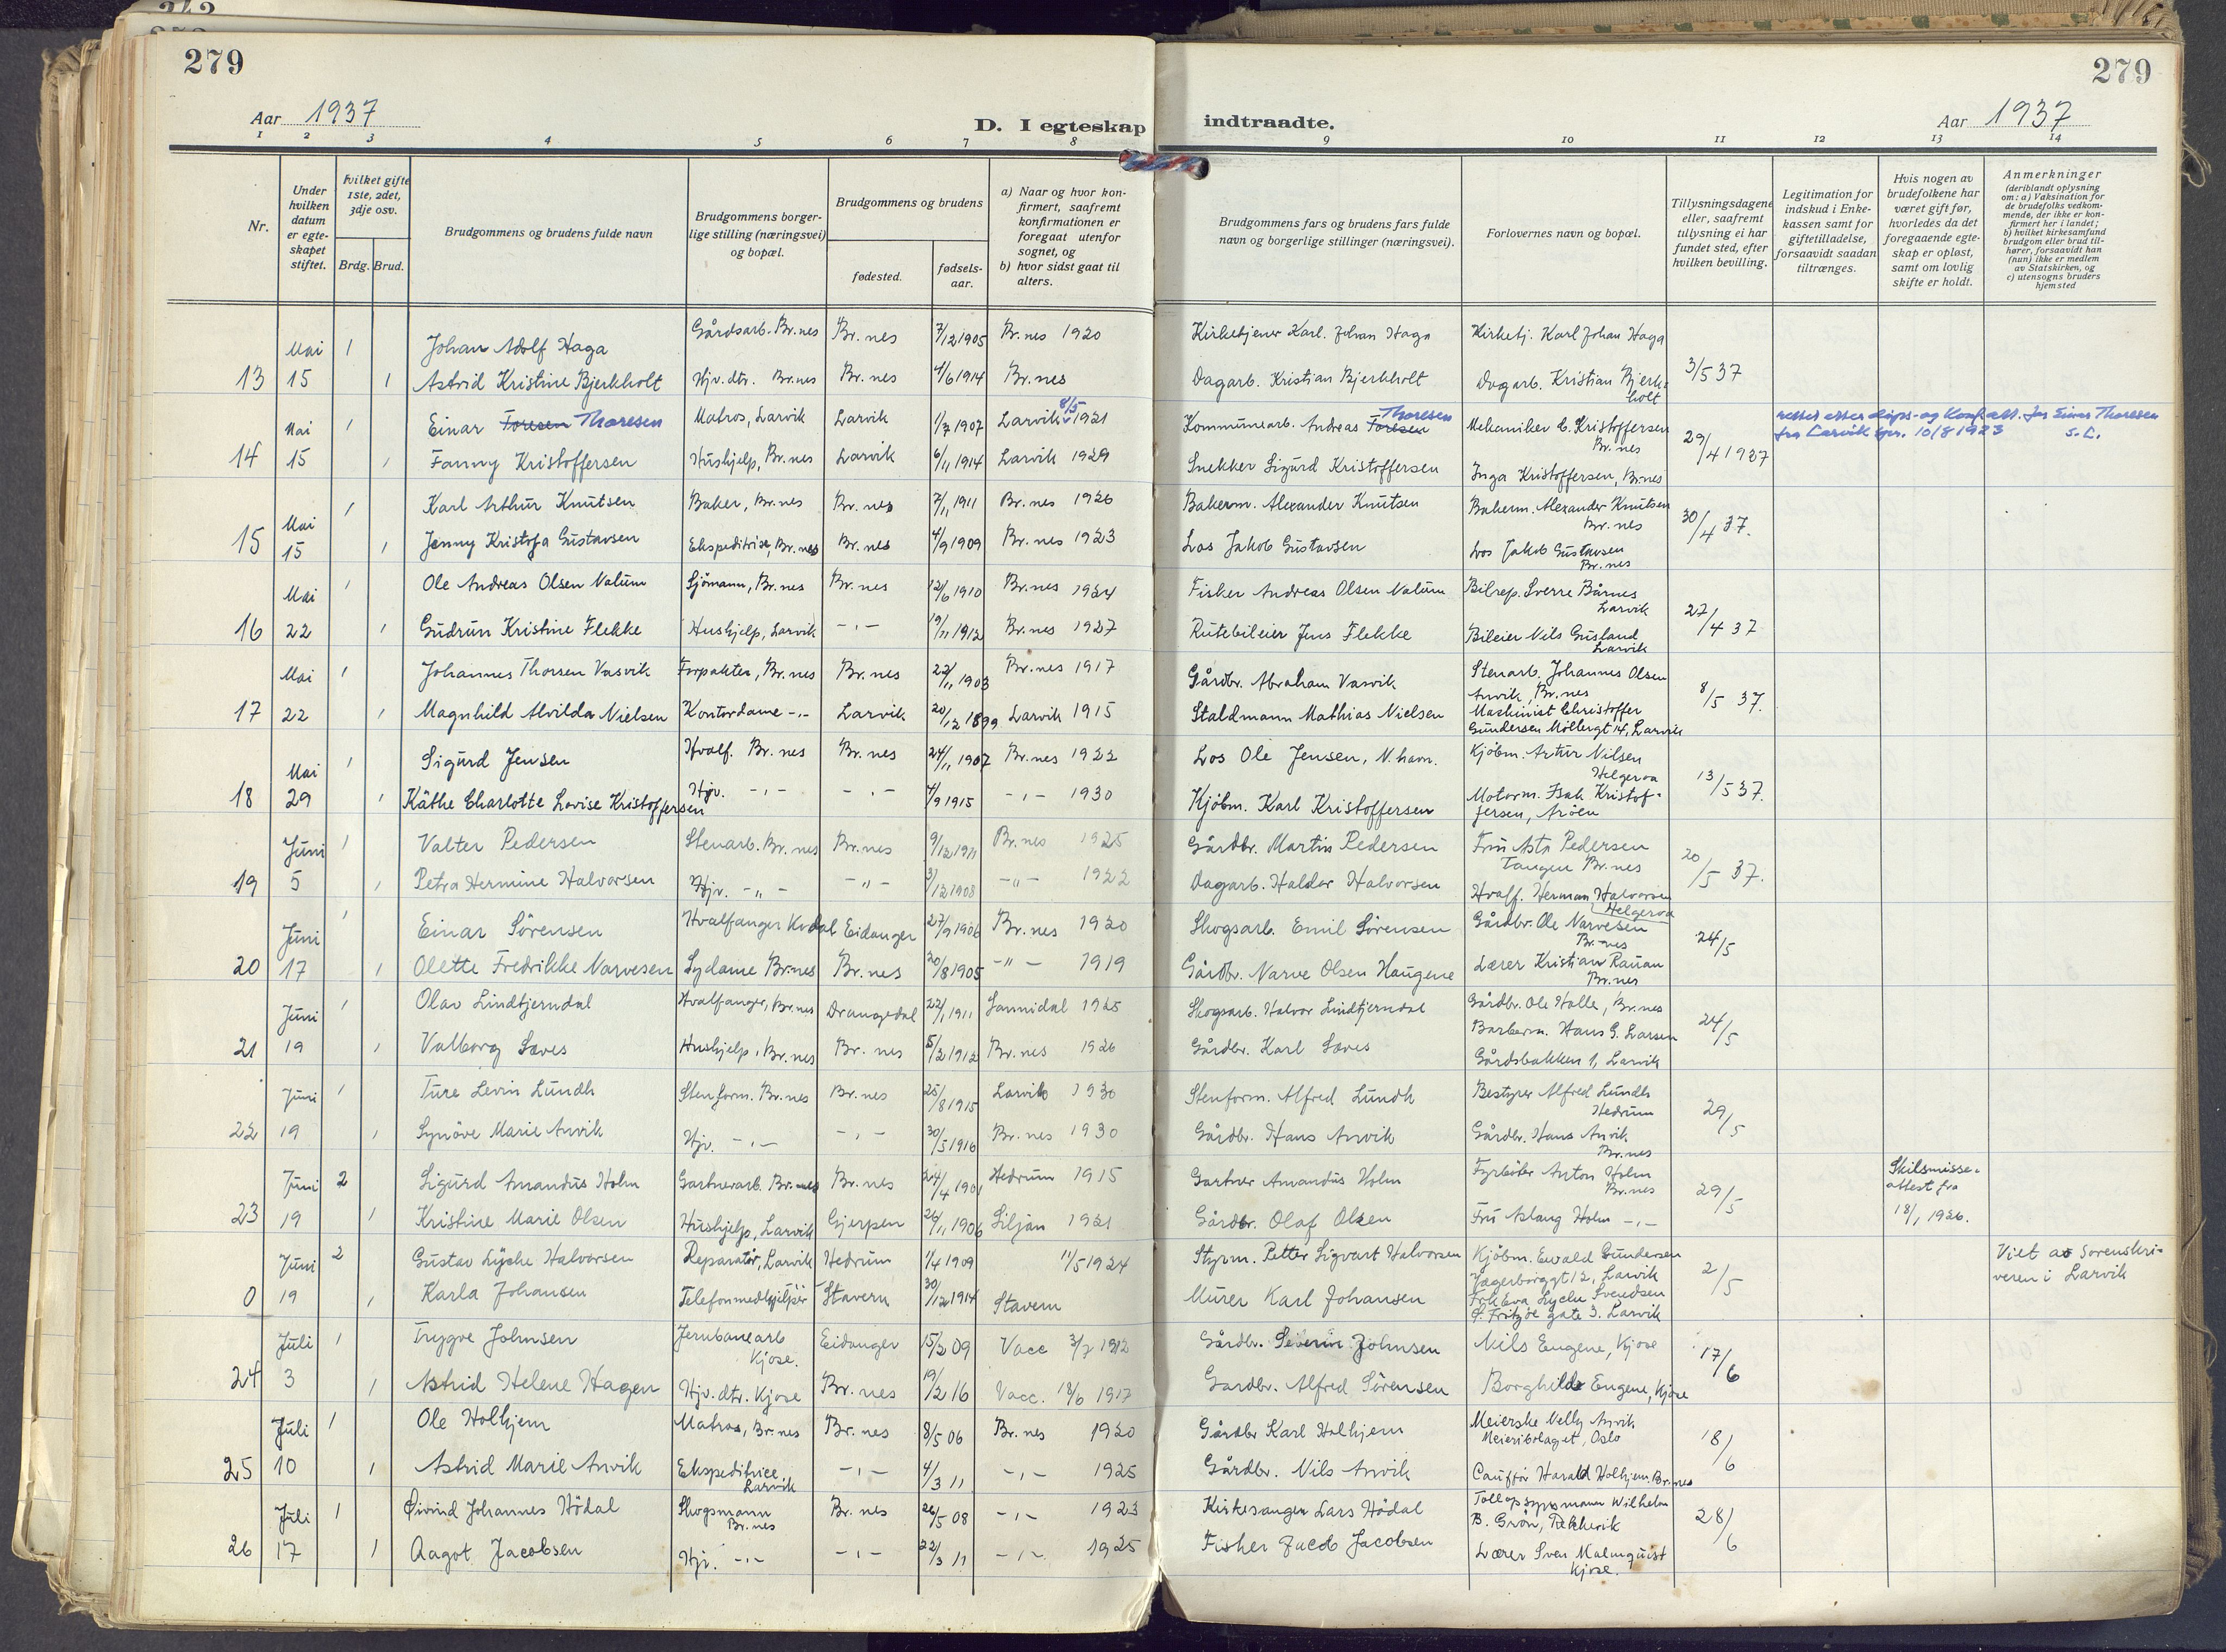 279
279
Aar 1937
D. I egteskap
indtraadte.
Aar 1937
1 2 3 4 5 6 7 8 9 10 11 12 13 14
Nr.
Under hvilken datum er egteskapet stiftet.
Hvilket gifte 1ste, 2det, 3dje osv.
Brdg. Brud.
Brudgommens og brudens fulde navn
Brudgommens borgerlige stilling (næringsvei) og bopæl.
Brudgommens og brudens
fødested.
fødselsaar.
a) Naar og hvor konfirmert, saafremt konfirmationen er foregaat utenfor sognet, og
b) hvor sidst gaat til alters.
Brudgommens fars og brudens fars fulde navn og borgerlige stillinger (næringsvei).
Forlovernes navn og bopæl.
Tillysningsdagene eller, saafremt tillysning ei har fundet sted, efter hvilken bevilling.
Legitimation for indskud i Enkekassen samt for giftetilladelse, forsaavidt saadan tiltrænges.
Hvis nogen av brudefolkene har været gift før, hvorledes da det foregaaende egteskap er opløst, samt om lovlig skifte er holdt.
Anmerkninger (deriblandt oplysning om: a) Vaksination for de brudefolks vedkommende, der ikke er konfirmert her i landet; b) hvilket kirkesamfund brudgom eller brud tilhører, forsaavidt han (hun) ikke er medlem av Statskirken, og c) utensogns bruders hjemsted
Mai 1 Johan Adolf Haga Gårdsarb. Br.nes Br.nes 7/12 1905 Br.nes 1920 Kirketjener Karl Johan Haga Kirketj. Karl Johan Haga
13 15 1 Astrid Kristine Bjerkholt Hjv. dtr. Br.nes Br.nes 4/6 1914 Br.nes Dagarb. Kristian Bjerkholt Dagarb. Kristian Bjerkholt 3/5 37
Mai 1 Einar Foresen Thoresen Matros, Larvik Larvik 1/7 1907 Larvik 8/5 1921 Kommunearb. Andreas Foresen Thoresen Mekaniker C. Kristoffersen Br.nes
rettet etter dåps- og konf.att. for Einar Thoresen
fra Larvik 10/8 1923
14 15 1 Fanny Kristoffersen Hushjelp, Br.nes Larvik 6/11 1914 Larvik 1929 Snekker Sigurd Kristoffersen Inga Kristoffersen, Br.nes 29/4 1937
Mai 1 Karl Arthur Knutsen Baker, Br.nes Br.nes 7/1 1911 Br.nes 1926 Bakerm. Alexander Knutsen Bakerm. Alexander Knutsen Br.nes
15 15 1 Jenny Kristofa Gustavsen Ekspeditrise, Br.nes Br.nes 4/9 1909 Br.nes 1923 Los Jakob Gustavsen Los Jakob Gustavsen Br.nes 30/4 37.
Mai 1 Ole Andreas Olsen Nalum Sjömann, Br.nes Br.nes 12/6 1910 Br.nes 1924 Fisker Andreas Olsen Nalum Bilrep. Sverre Bårnes Larvik
16 22 1 Gudrun Kristine Flekke Hushjelp, Larvik -"- 19/11 1912 Br.nes 1927 Rutebileier Jens Flekke Bileier Nils Gusland Larvik 27/4 37
Mai 1 Johannes Thorsen Vasvik Forpakter, Br.nes Br.nes 22/11 1903 Br.nes 1917 Gårdbr. Abraham Vasvik Stenarb. Johannes Olsen Anvik, Br.nes
17 22 1 Magnhild Alvilda Nielsen Kontordame -"- Larvik 20/12 1899 Larvik 1915 Staldmann Mathias Nielsen Maskinist Christoffer Gundersen Möllergt 14, Larvik 8/5 37.
Mai 1 Sigurd Jensen Hvalf. Br.nes Br.nes 24/11 1907 Br.nes 1922 Los Ole Jensen, N.havn. Kjöbm. Artur Nilsen Helgeroa
18 29 1 Käthe Charlotte Lovise Kristoffersen Hjv. -"- -"- 4/9 1915 -"- 1930 Kjöbm. Karl Kristoffersen Motorm. Isak Kristoffersen, Aröen 13/5 37.
Juni 1 Valter Pedersen Stenarb. Br.nes Br.nes 9/12 1911 Br.nes 1925 Gårdbr. Martin Pedersen Fru Asta Pedersen Tangen Br.nes
19 5 1 Petra Hermine Halvorsen Hjv. -"- -"- 3/12 1908 -"- 1922 Dagarb. Haldor Halvorsen Hvalf. Herman Halvorsen Helgeroa 20/5 37.
Juni 1 Einar Sörensen Hvalfanger Kodal Eidanger 27/9 1906 Br.nes 1920 Skogsarb. Emil Sörensen Gårdbr. Ole Narvesen Br.nes
20 17 1 Olette Fredrikke Narvesen Sydame Br.nes Br.nes 20/8 1905 -"- 1919 Gårdbr. Narve Olsen Haugene Lærer Kristian Rauan Br.nes 24/5
Juni 1 Olav Lindtjerndal Hvalfanger, Br.nes Drangedal 22/1 1911 Sannidal 1925 Skogsarb. Halvor Lindtjerndal Gårdbr. Ole Halle, Br.nes
21 19 1 Valborg Saves Hushjelp, Br.nes Br.nes 5/2 1912 Br.nes 1926 Gårdbr. Karl Saves Barberm. Hans G. Larsen Gårdsbakken 1, Larvik 24/5
Juni 1 Ture Levin Lundh Stenform. Br.nes Br.nes 25/8 1915 Larvik 1930 Stenform. Alfred Lundh Bestyrer Alfred Lundh Hedrum
22 19 1 Synöve Marie Anvik Hjv. -"- -"- 30/5 1916 Br.nes 1930 Gårdbr. Hans Anvik Gårdbr. Hans Anvik Br.nes 29/5
Juni 2 Sigurd Amandus Holm Gartnerarb. Br.nes Br.nes 24/4 1901 Hedrum 1915 Gartner Amandus Holm Fyrböter Anton Holm Br.nes Skilsmisseattest fra 18/1 1926.
23 19 1 Kristine Marie Olsen Hushjelp, Larvik Gjerpen 26/11 1906 Siljan 1921 Gårdbr. Olaf Olsen Fru Aslaug Holm -"- 29/5
Juni 2 Gustav Lyche Halvorsen Reparatör, Larvik Hedrum 1/4 1909 11/5 1924 Styrm. Petter Sigvart Halvorsen Kjöbm. Ewald Gundersen Jegerborggt 12, Larvik Viet av Sorenskriveren i Larvik
0 19 1 Karla Johansen Telefonmedhjelper Stavern 30/12 1914 Stavern Murer Karl Johansen Frk Eva Lyche Svendsen Fritzöe gate 3. Larvik 2/5
Juli 1 Trygve Johnsen Jernbanearb Kjose. Eidanger 15/2 09 Vacc 3/7 1912 Gårdbr. Severin Johnsen Nils Eugene, Kjose
24 3 1 Astrid Helene Hagen Hjv. dtr. Kjose Br.nes 19/2 16 Vacc. 18/6 1917 Gardbr. Alfred Sörensen Borghild Eugene, Kjose 17/6
Juli 1 Ole Holhjem Matros, Br.nes Br.nes 8/5 06 Br.nes 1920 Gårdbr Karl Holhjem Meierske Nelly Anvik Meieribolaget, Oslo
25 10 1 Astrid Marie Anvik Ekspeditrice, Larvik -"- 4/3 11 -"- 1925 Gårdbr. Nils Anvik Caufför Harald Holhjem, Br.nes 18/6
Juli 1 Öivind Johannes Hödal Skogsmann Br.nes Br.nes 26/5 08 -"- 1923 Kirkesanger Lars Hödal Tollopsynsmann Wilhelm B. Grön,
26 17 1 Aagot Jacobsen Hjv. -"- -"- 22/3 11 -"- 1925 Fisker Jacob Jacobsen Lærer Sven Malmquist Kjose. 28/6